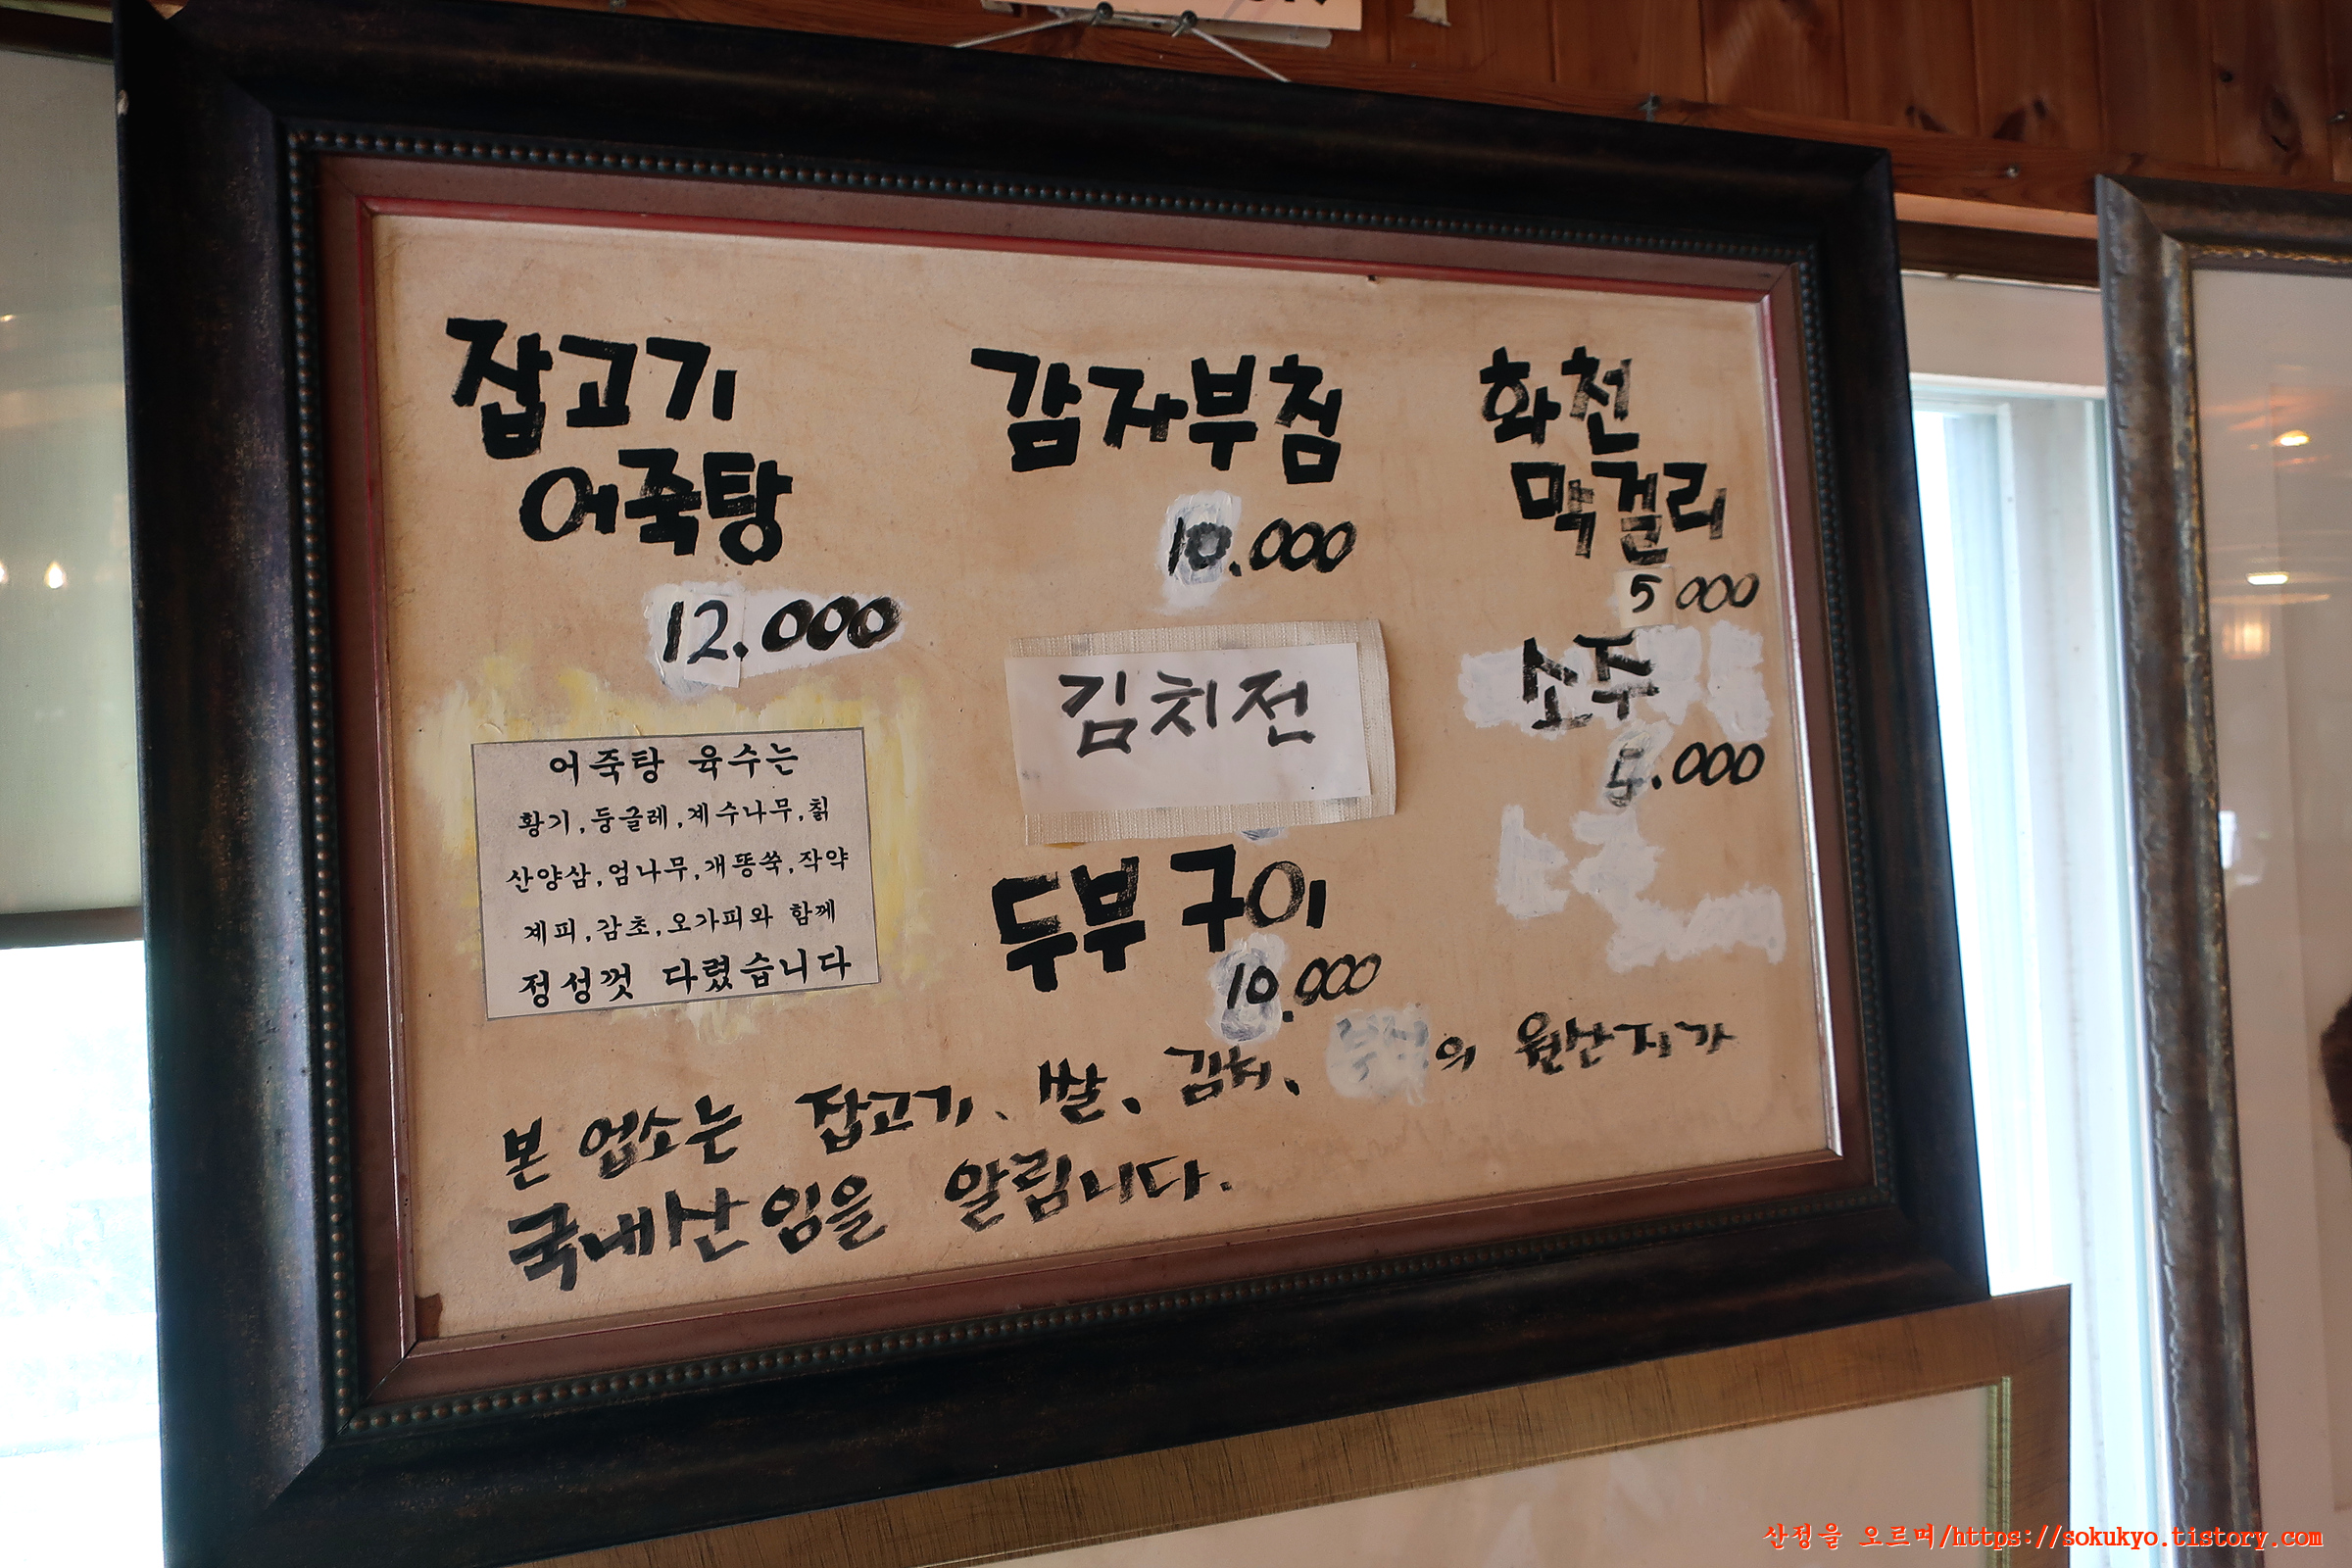 잡고기
어죽탕
12.000
어죽탕 육수는
황기,둥글레,계수나무,칡
산양삼,엄나무,개똥쑥,작약
계피,감초,오가피와 함께
정성껏 다렸습니다
감자부침
10.000
김치전
두부구이
10.000
화천
막걸리
5000
소주
5.000
본 업소는 잡고기、쌀、김치、의 원산지가
국내산임을 알림니다.
산정을 오르며/https://sokukyo.tistory.com